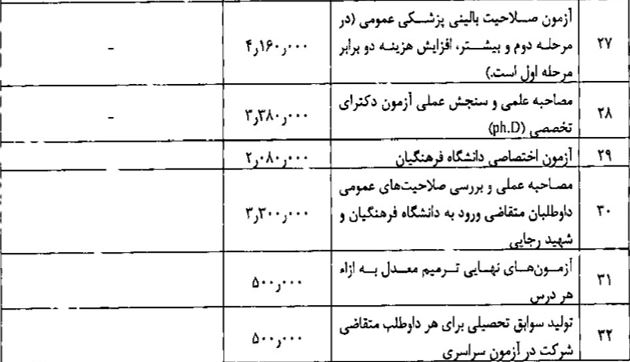 ۲۷ آزمون صلاحیت بالینی پزشکی عمومی (در ۴٫۱۶۰٫۰۰۰ -
مرحله دوم و بیشتر، افزایش هزینه دو برابر
مرحله اول است.)
۲۸ مصاحبه علمی و سنجش عملی آزمون دکترای ۳٫۳۸۰٫۰۰۰ -
تخصصی (ph.D)
۲۹ آزمون اختصاصی دانشگاه فرهنگیان ۲٫۰۸۰٫۰۰۰
۳۰ مصاحبه عملی و بررسی صلاحیت‌های عمومی ۳٫۳۰۰٫۰۰۰
داوطلبان متقاضی ورود به دانشگاه فرهنگیان و
شهید رجایی
۳۱ آزمون‌های نهایی ترمیم معدل به ازاء ۵۰۰٫۰۰۰
هر درس
۳۲ تولید سوابق تحصیلی برای هر داوطلب متقاضی ۵۰۰٫۰۰۰
شرکت در آزمون سراسری